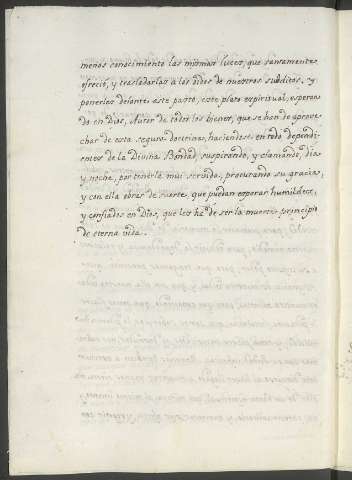 menos conocimiento las mismas luces, que santamente
ofreció, y trasladarlas a los oídos de nuestros subditos, y
ponerles delante este pasto, este plato espiritual, esperan-
do en Dios, Autor de todos los bienes, que se han de aprove-
char de esta segura doctrina, haciendose en todo dependi-
entes de la Divina Bondad, suspirando, y clamando, dia,
y noche, por tenerla mui servida, procurando su gracia,
y con ella obras de suerte, que puedan esperar humildes,
y confiados en Dios, que les ha de ser la muerte principio
de eterna vida.